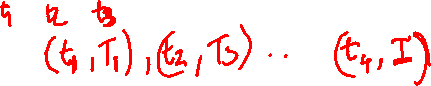 t1 t2 t3
(t1, T1), (t2, T3) .. (t4, I)